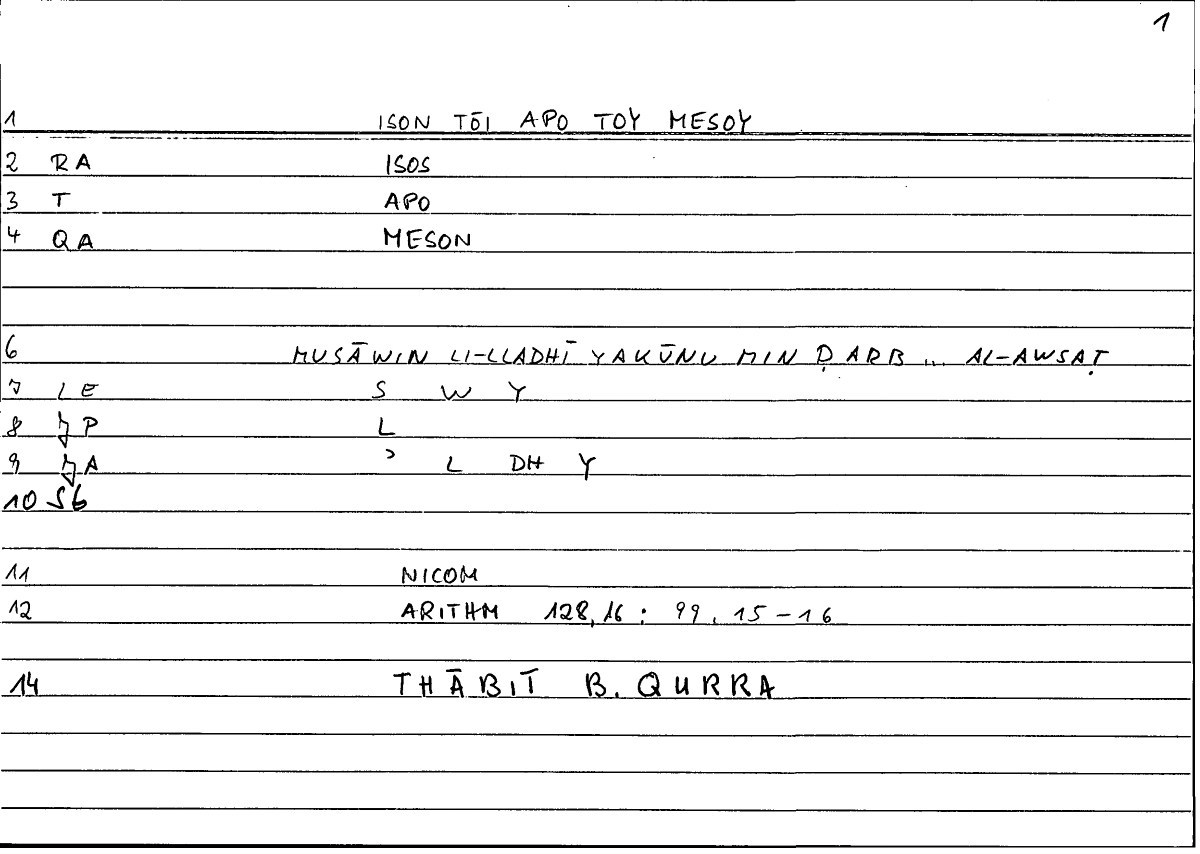 1
1 ISON TŌI APO TOY MESOY
2 RA ISOS
3 T APO
4 QA MESON
6 MUSĀWIN LI-LLADHĪ YAKŪNU MIN ḌARB ... AL-AWSAṬ
7 LE S W Y
8 JP L
9 JA ʾ L DH Y
10 S6
11 NICOM
12 ARITHM 128,16 : 99.15-16
14 THĀBIT B. QURRA